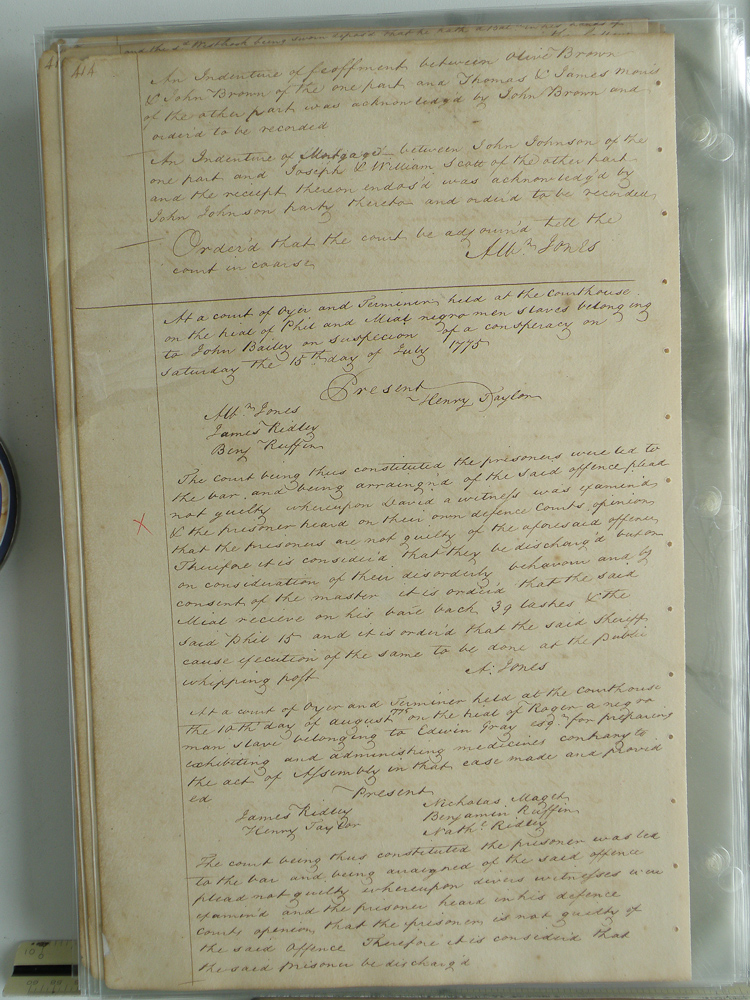 414
An Indenture of feoffment between Olive Brown
& John Brown of the one part and Thomas & James Morris
of the other part was acknowledg'd by John Brown and
order'd to be recorded
An Indenture of Mortgage between John Johnson of the
one part and Joseph & William Scott of the other part
and the receipt thereon endos'd was acknowledg'd by
John Johnson party thereto and order'd to be recorded
Order'd that the court be adjourn'd till the
court in coarse
Alb:n Jones
At a court of Oyer and Terminer held at the Courthouse
on the trial of Phil and Mial negro men slaves belonging
to John Bailey on suspecion of a conspiracy on
Saturday the 15th day of July 1775
Present
Henry Taylor
Alb:n Jones
James Ridley
Benj Ruffin
The court being thus constituted the prisoners were led to
the bar and being arraingn'd of the said offence plead
not guilty whereupon David a witness was examin'd
& the prisoner heard on their own defence Courts opinion
that the prisoners are not guilty of the aforesaid offence
Therefore it is consider'd that they be discharg'd but on
on consideration of their disorderly behavour and by
consent of the master it is order'd that the said
Mial recieve on his bare back 39 lashes & the
said Phil 15 and it is order'd that the said Sheriff
cause execution of the same to be done at the public
whipping post
A: Jones
At a court of Oyer and Terminer held at the Courthouse
the 10th day of august 1775 on the trial of Roger a negro
man slave belonging to Edwin Gray esq.r for prepareing
exhibiting and administring medicines contrary to
the act of Assembly in that case made and provid
ed
Present
James Ridley
Henry Taylor
Nicholas Maget
Benjamin Ruffin
Nath:l Ridley
The court being thus constituted the prisoner was led
to the bar and being arraigned of the said offence
plead not guilty whereupon divers witnesses were
examin'd and the prisoner heard in his defence
Courts opinion that the prisoner is not guilty of
the said Offence Therefore it is consider'd that
the said prisoner be discharg'd